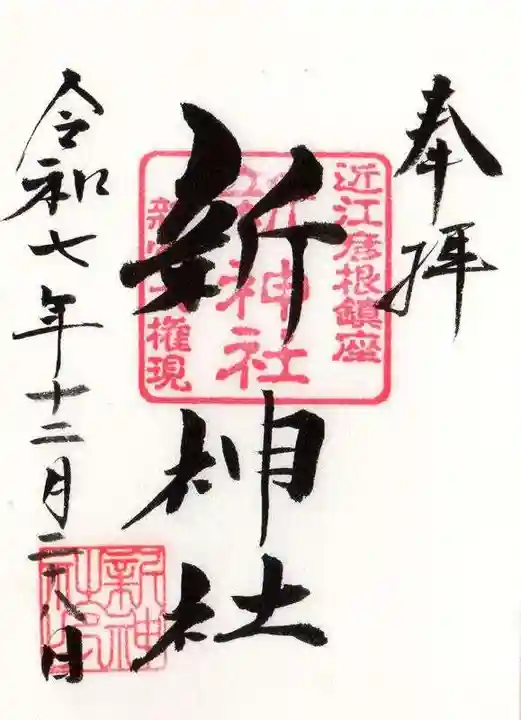 奉拝
近江彦根鎮座
新神社
権現
新神社
令和七年十二月二十八日